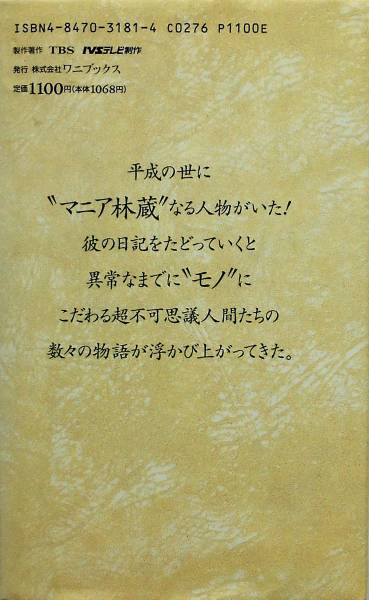 ISBN4-8470-3181-4 C0276 P1100E
製作著作 TBS IVSテレビ制作
発行 株式会社ワニブックス
定価1100円(本体1068円)
平成の世に
〝マニア林蔵〟なる人物がいた!
彼の日記をたどっていくと
異常なまでに〝モノ〟に
こだわる超不可思議人間たちの
数々の物語が浮かび上がってきた。